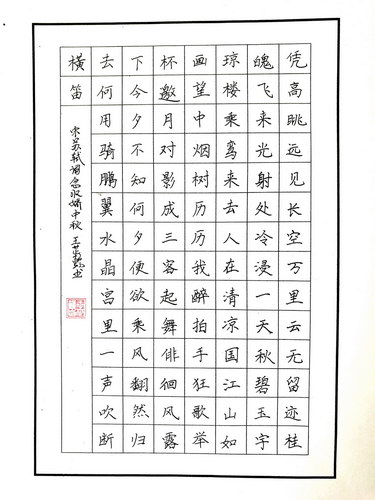 凭高眺远见长空万里云无留迹桂
魄飞来光射处冷浸一天秋碧玉宇
琼楼乘鸾来去人在清凉国江山如
画望中烟树历历我醉拍手狂歌举
杯邀月对影成三客起舞徘徊风露
下今夕不知何夕便欲乘风翻然归
去何用骑鹏翼水晶宫里一声吹断
横笛
宋苏轼词念奴娇中秋 王